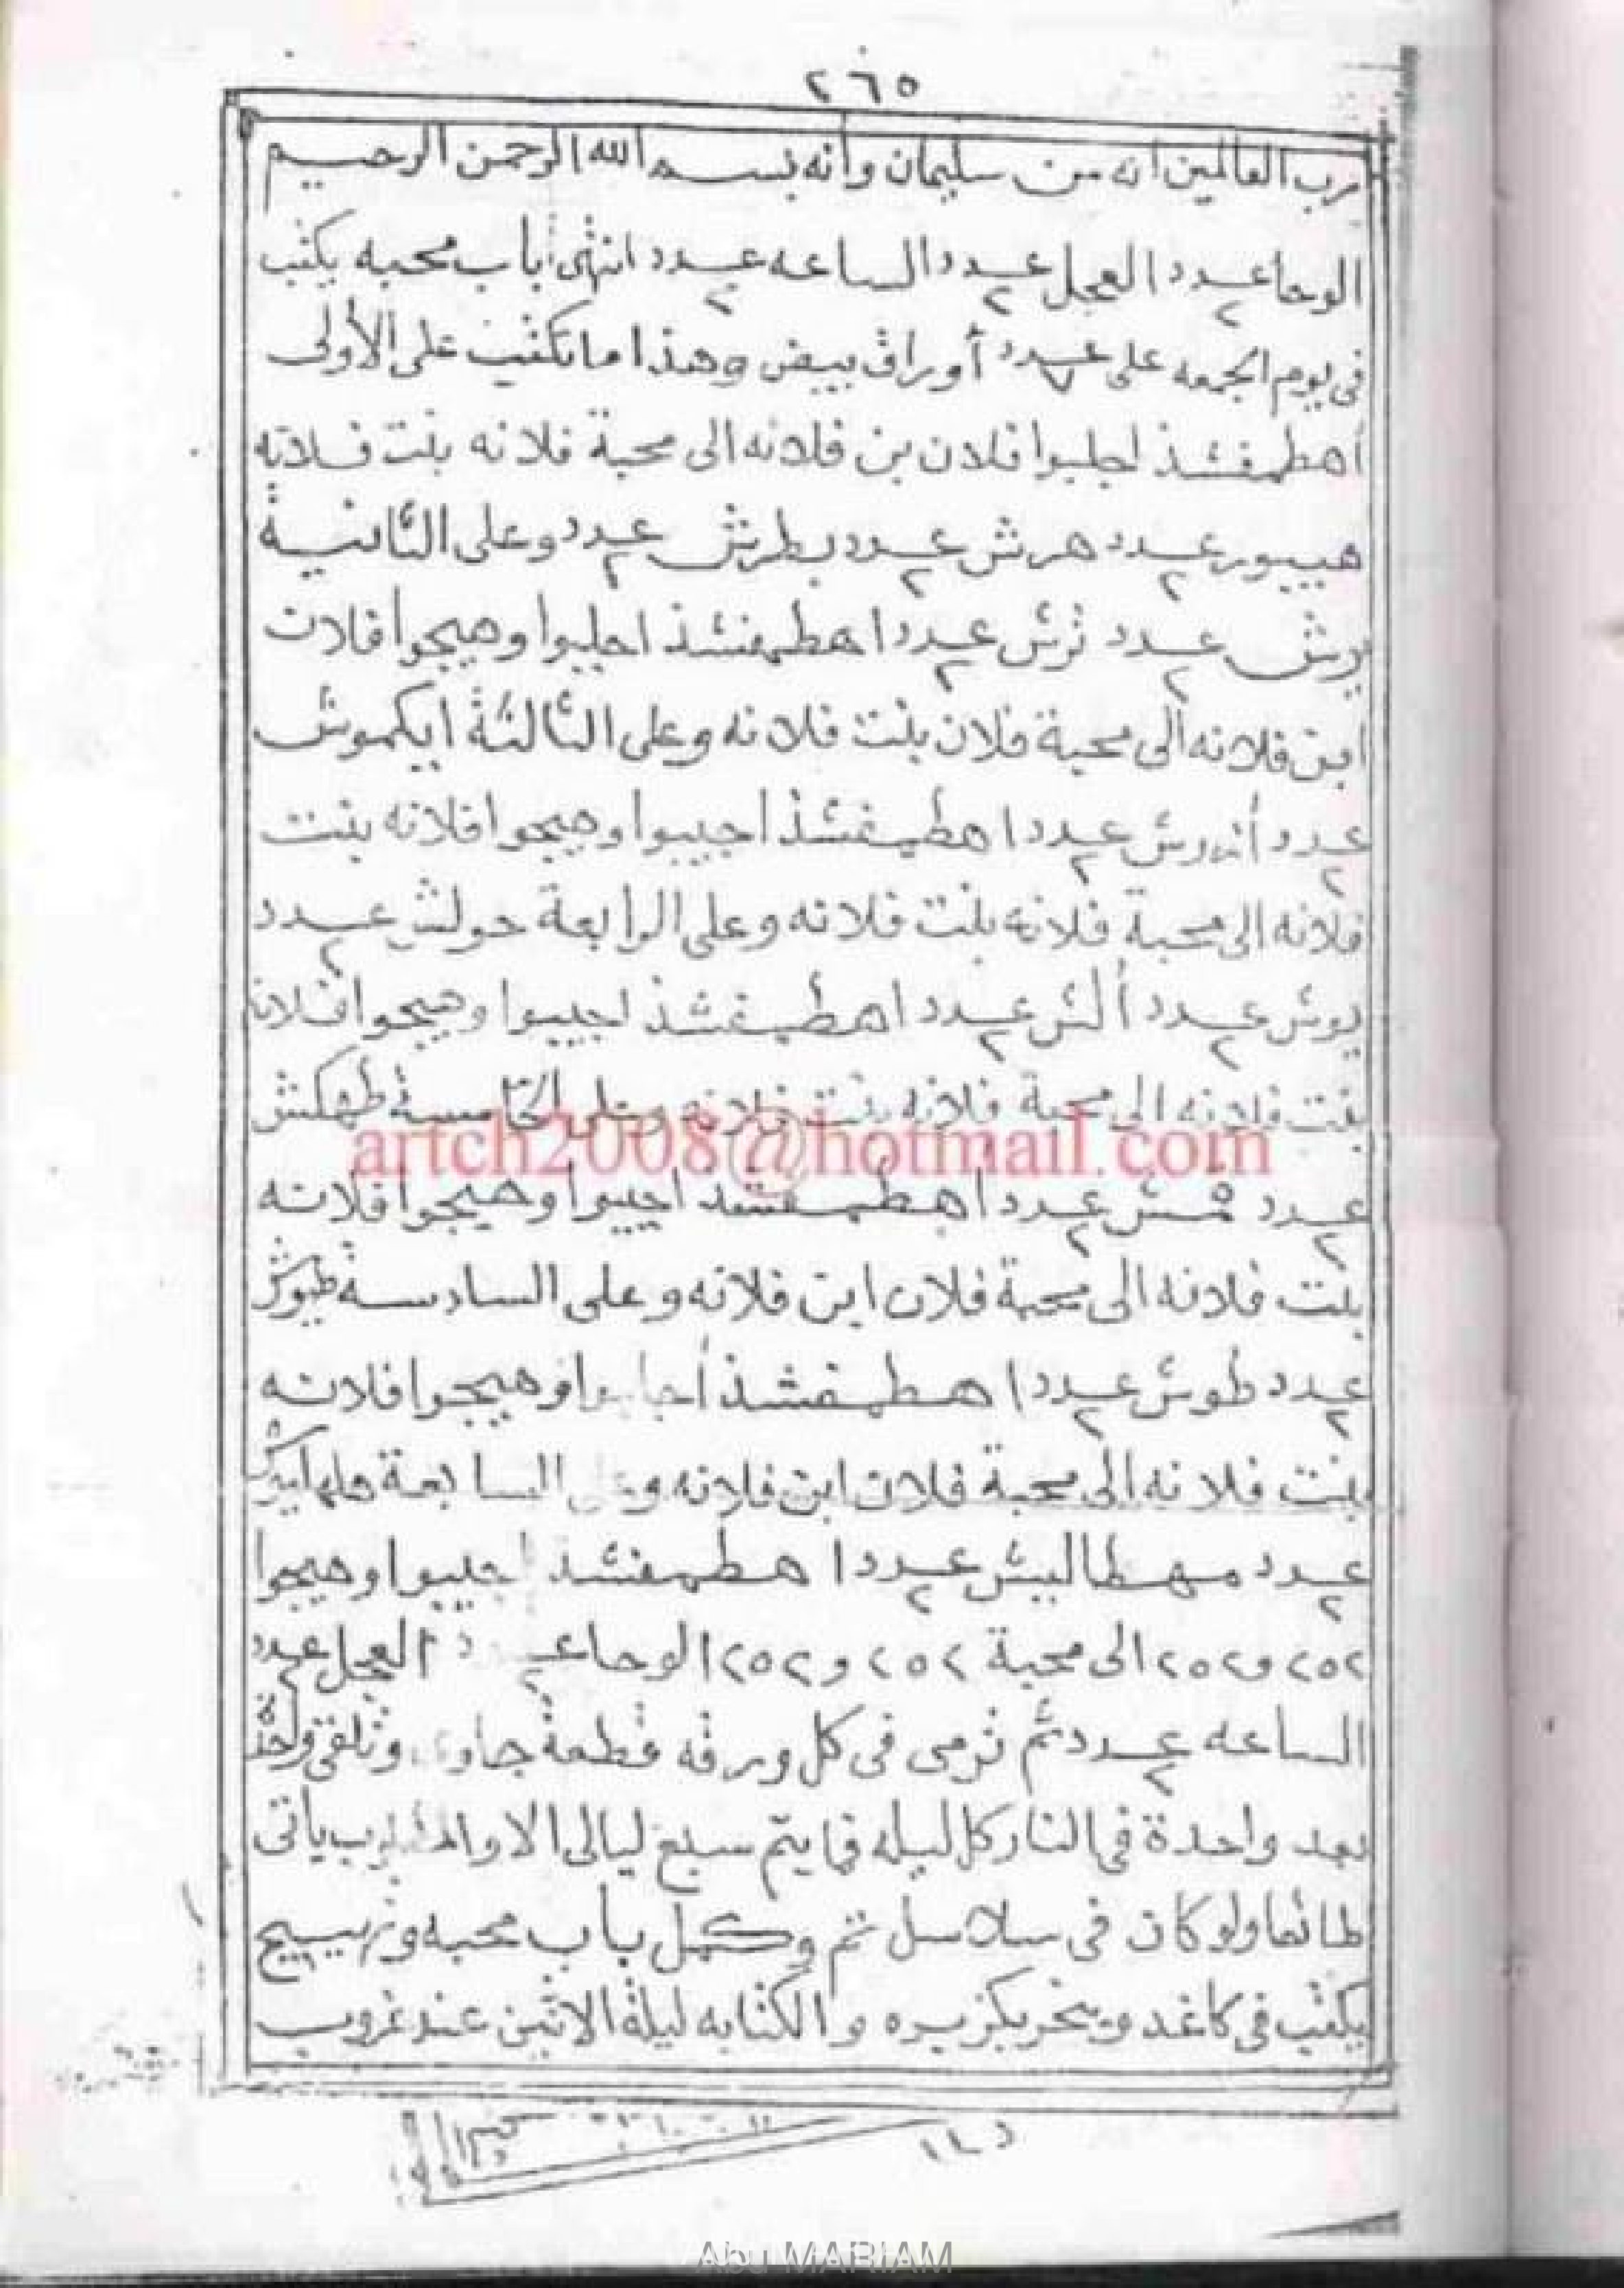 ٢٦٥
رب العالمين انه من سليمان وانه بسم الله الرحمن الرحيم
الوحا عدد ٢ العجل عدد ٢ الساعه عدد ٢ انتهى باب محبه يكتب
في يوم الجمعه على عدد ٧ أوراق بيض وهذا ما تكتب على الأولى
أهطمفشذ اجلبوا فلان بن فلانه الى محبة فلانه بنت فلانه
هيبور عدد ٢ هرش عدد ٢ بطرش عدد ٢ وعلى الثانية
برش عدد ٢ نرش عدد ٢ اهطمفشذ اجلبوا وهيجوا فلان
ابن فلانه الى محبة فلان بنت فلانه وعلى الثالثة ايكموش
عدد ٢ عدد ٢ اهطمفشذ اجيبوا وهيجوا فلانه بنت
فلانه الى محبة فلانه بنت فلانه وعلى الرابعة حولش عدد ٢
يوش عدد ٢ ألش عدد ٢ اهطمفشذ اجيبوا وهيجوا فلانه
بنت فلانه الى محبة فلانه بنت فلانه وعلى الخامسة طهكش
artch2008@hotmail.com
عدد ٢ عدد ٢ اهطمفشذ اجيبوا وهيجوا فلانه
بنت فلانه الى محبة فلان ابن فلانه وعلى السادسة
عدد ٢ طوش عدد ٢ اهطمفشذ وهيجوا فلانه
بنت فلانه الى محبة فلان ابن فلانه وعلى السابعة
عدد ٢ مهطالبش عدد ٢ اهطمفشذ اجيبوا وهيجوا
٢٥٢ و٢٥٢ الى محبة ٢٥٢ و٢٥٢ الوحا عدد ٢ العجل عدد ٢
الساعه عدد ٢ ثم ترمى في كل ورقه قطعة جاوى وتلقى واحدة
بعد واحدة في النار كل ليله فما يتم سبع ليالى الا والمطلوب يأتى
طائعا ولو كان في سلاسل تم وكمل باب محبه وتهييج
يكتب في كاغد ويبخر بكزبره والكتابه ليلة الاثنين عند غروب
Abu MARIAM